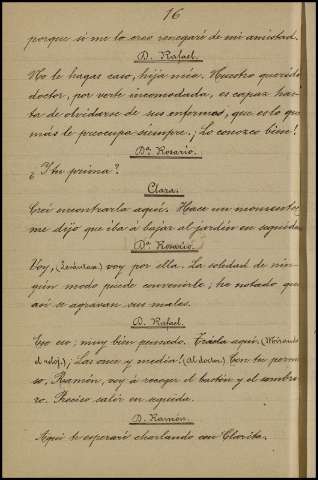 16
porque si me lo creo renegaré de mi amistad.
D. Rafael.
No le hagas caso, hija mía. Nuestro querido
doctor, por verte incomodada, es capaz has-
ta de olvidarse de sus enfermos, que es lo que
más le preocupa siempre. ¡Lo conozco bien!
Dª Rosario.
¿Y tu prima?
Clara.
Creí encontrarla aquí. Hace un momento
me dijo que iba á bajar al jardín en seguida
Dª Rosario.
Voy, (Levántase) voy por ella. La soledad de nin-
gún modo puede convenirle; he notado que
así se agravan sus males.
D. Rafael.
Eso es: muy bien pensado. Tráela aquí. (Mirando
el reloj.) ¡Las once y media! (Al doctor.) Con tu permi-
so, Ramón, voy á recoger el bastón y el sombre-
ro. Preciso salir en seguida.
D. Ramón.
Aquí te esperaré charlando con Clarita.